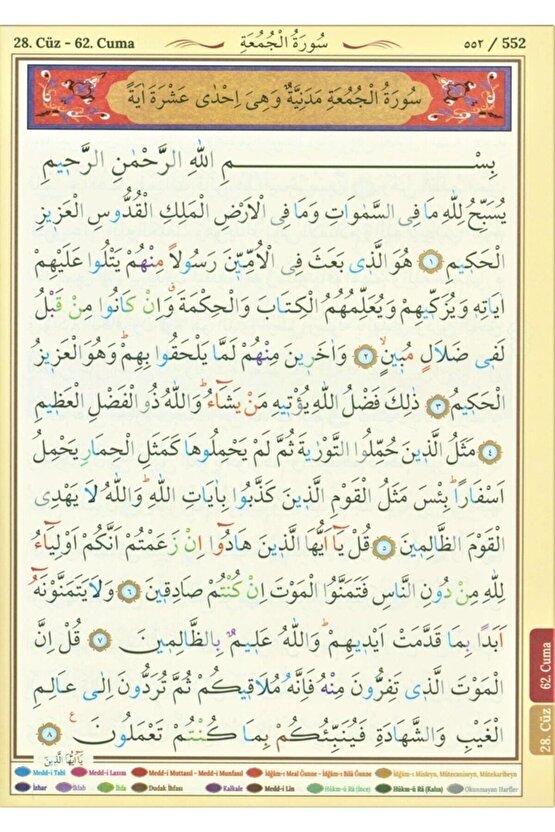 28. Cüz - 62. Cuma سُورَةُ الْجُمُعَةِ ٥٥٢ / 552
سُورَةُ الْجُمُعَةِ مَدَنِيَّةٌ وَهِىَ اِحْدٰى عَشْرَةَ اٰيَةً
بِسْمِ اللّٰهِ الرَّحْمٰنِ الرَّحٖيمِ
يُسَبِّحُ لِلّٰهِ مَا فِى السَّمٰوَاتِ وَمَا فِى الْاَرْضِ الْمَلِكِ الْقُدُّوسِ الْعَزٖيزِ
الْحَكٖيمِ ١ هُوَ الَّذٖى بَعَثَ فِى الْاُمِّيّٖنَ رَسُولاً مِنْهُمْ يَتْلُوا عَلَيْهِمْ
اٰيَاتِهٖ وَيُزَكّٖيهِمْ وَيُعَلِّمُهُمُ الْكِتَابَ وَالْحِكْمَةَ وَاِنْ كَانُوا مِنْ قَبْلُ
لَفٖى ضَلَالٍ مُبٖينٍ ٢ وَاٰخَرٖينَ مِنْهُمْ لَمَّا يَلْحَقُوا بِهِمْ وَهُوَ الْعَزٖيزُ
الْحَكٖيمُ ٣ ذٰلِكَ فَضْلُ اللّٰهِ يُؤْتٖيهِ مَنْ يَشَاءُ وَاللّٰهُ ذُو الْفَضْلِ الْعَظٖيمِ
٤ مَثَلُ الَّذٖينَ حُمِّلُوا التَّوْرٰيةَ ثُمَّ لَمْ يَحْمِلُوهَا كَمَثَلِ الْحِمَارِ يَحْمِلُ
اَسْفَاراً بِئْسَ مَثَلُ الْقَوْمِ الَّذٖينَ كَذَّبُوا بِاٰيَاتِ اللّٰهِ وَاللّٰهُ لَا يَهْدِى
الْقَوْمَ الظَّالِمٖينَ ٥ قُلْ يَا اَيُّهَا الَّذٖينَ هَادُوا اِنْ زَعَمْتُمْ اَنَّكُمْ اَوْلِيَاءُ
لِلّٰهِ مِنْ دُونِ النَّاسِ فَتَمَنَّوُا الْمَوْتَ اِنْ كُنْتُمْ صَادِقٖينَ ٦ وَلَا يَتَمَنَّوْنَهُ
اَبَداً بِمَا قَدَّمَتْ اَيْدٖيهِمْ وَاللّٰهُ عَلٖيمٌ بِالظَّالِمٖينَ ٧ قُلْ اِنَّ
الْمَوْتَ الَّذٖى تَفِرُّونَ مِنْهُ فَاِنَّهُ مُلَاقٖيكُمْ ثُمَّ تُرَدُّونَ اِلٰى عَالِمِ
الْغَيْبِ وَالشَّهَادَةِ فَيُنَبِّئُكُمْ بِمَا كُنْتُمْ تَعْمَلُونَ ٨
يَا اَيُّهَا الَّذٖينَ
28. Cüz 62. Cuma
Medd-i Tabi Medd-i Lazım Medd-i Muttasıl - Medd-i Munfasıl İdğam-ı Meal Ğunne - İdğam-ı Bilâ Ğunne İdğam-ı Misleyn, Mütecaniseyn, Mütekaribeyn
İzhar İklab İhfa Dudak İhfası Kalkale Medd-i Lin Hükm-ü Râ (İnce) Hükm-ü Râ (Kalın) Okunmayan Harfler